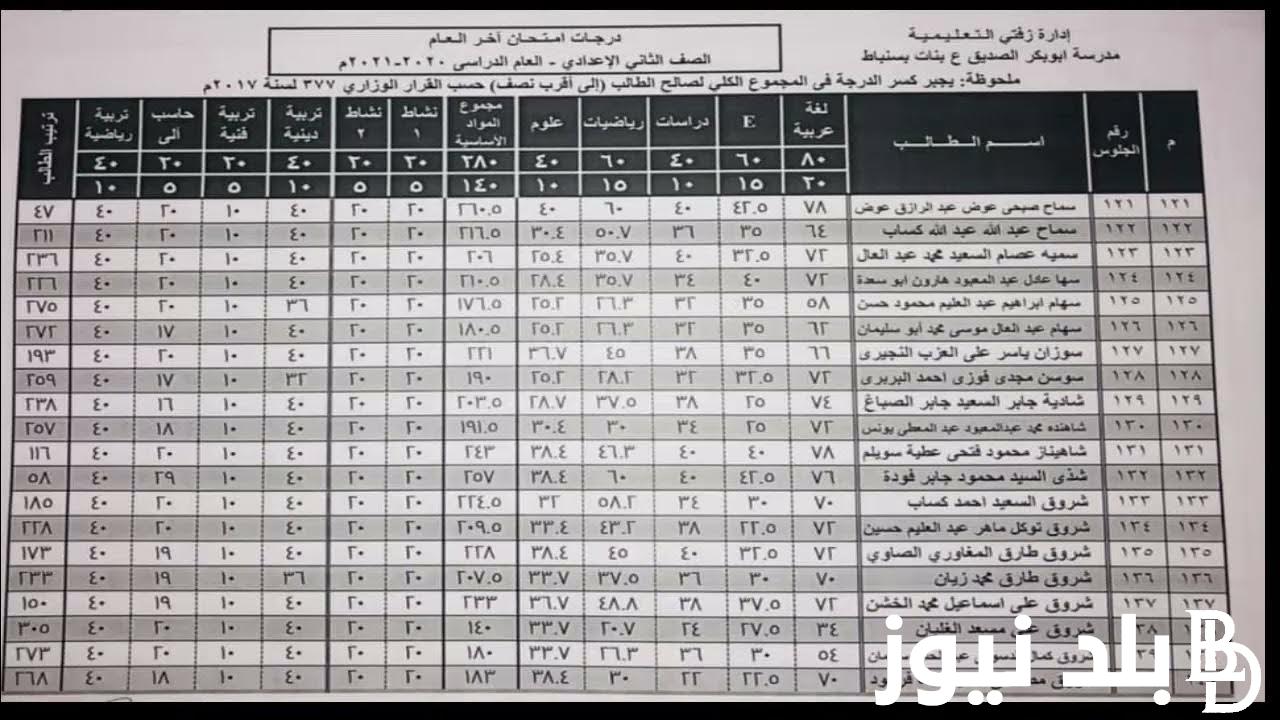 إدارة زفتي التعليمية
مدرسة ابوبكر الصديق ع بنات بسنباط
درجات امتحان آخر العام
الصف الثاني الإعدادي - العام الدراسى ٢٠٢٠-٢٠٢١م
ملحوظة: يجبر كسر الدرجة فى المجموع الكلي لصالح الطالب (إلى أقرب نصف) حسب القرار الوزاري ٣٧٧ لسنة ٢٠١٧م
م رقم الجلوس اسم الطالب لغة عربية E دراسات رياضيات علوم مجموع المواد الأساسية نشاط ١ نشاط ٢ تربية دينية تربية فنية حاسب آلى تربية رياضية ترتيب الطالب
٨٠ ٦٠ ٤٠ ٦٠ ٤٠ ٢٨٠ ٢٠ ٢٠ ٤٠ ٢٠ ٢٠ ٤٠
٢٠ ١٥ ١٠ ١٥ ١٠ ١٤٠ ٥ ٥ ١٠ ٥ ٥ ١٠
١٢١ ١٢١ سماح صبحى عوض عبد الرازق عوض ٧٨ ٤٢.٥ ٤٠ ٦٠ ٤٠ ٢٦٠.٥ ٢٠ ٢٠ ٤٠ ١٠ ٢٠ ٤٠ ٤٧
١٢٢ ١٢٢ سماح عبد الله عبد الله كساب ٦٤ ٣٥ ٣٦ ٥٠.٧ ٣٠.٤ ٢١٦.٥ ٢٠ ٢٠ ٤٠ ١٠ ٢٠ ٤٠ ٢١١
١٢٣ ١٢٣ سميه عصام السعيد محمد عبد العال ٧٢ ٣٢.٥ ٤٠ ٣٥.٧ ٢٥.٤ ٢٠٦ ٢٠ ٢٠ ٤٠ ١٠ ٢٠ ٤٠ ٢٣٦
١٢٤ ١٢٤ سها عادل عبد المعبود هارون ابو سعدة ٧٢ ٤٠ ٣٤ ٣٥.٧ ٢٨.٤ ٢١٠.٥ ٢٠ ٢٠ ٤٠ ١٠ ٢٠ ٤٠ ٢٢٦
١٢٥ ١٢٥ سهام ابراهيم عبد العليم محمود حسن ٥٨ ٣٥ ٣٢ ٢٦.٣ ٢٥.٢ ١٧٦.٥ ٢٠ ٢٠ ٣٦ ١٠ ٢٠ ٤٠ ٢٧٥
١٢٦ ١٢٦ سهام عبد العال موسى محمد أبو سليمان ٦٢ ٣٥ ٣٢ ٢٦.٣ ٢٥.٢ ١٨٠.٥ ٢٠ ٢٠ ٤٠ ١٠ ١٧ ٤٠ ٢٧٢
١٢٧ ١٢٧ سوزان ياسر على العزب النجيرى ٦٦ ٣٥ ٣٨ ٤٥ ٣٦.٧ ٢٢١ ٢٠ ٢٠ ٤٠ ١٠ ٢٠ ٤٠ ١٩٣
١٢٨ ١٢٨ سوسن مجدى فوزى احمد البربرى ٧٢ ٣٢.٥ ٣٢ ٢٨.٢ ٢٥.٢ ١٩٠ ٢٠ ٢٠ ٣٢ ١٠ ١٧ ٤٠ ٢٥٩
١٢٩ ١٢٩ شادية جابر السعيد جابر الصباغ ٧٤ ٢٥ ٣٨ ٣٧.٥ ٢٨.٧ ٢٠٣.٥ ٢٠ ٢٠ ٤٠ ١٠ ١٦ ٤٠ ٢٣٨
١٣٠ ١٣٠ شاهنده محمد عبدالمعبود عبد المعطى يونس ٧٢ ٢٥ ٣٤ ٣٠ ٣٠.٤ ١٩١.٥ ٢٠ ٢٠ ٤٠ ١٠ ١٨ ٤٠ ٢٥٧
١٣١ ١٣١ شاهيناز محمود فتحى عطية سويلم ٧٨ ٤٠ ٤٠ ٤٦.٣ ٣٨.٤ ٢٤٣ ٢٠ ٢٠ ٤٠ ١٠ ٢٠ ٤٠ ١١٦
١٣٢ ١٣٢ شذى السيد محمود جابر فودة ٧٦ ٤٢.٥ ٤٠ ٦٠ ٣٨.٤ ٢٥٧ ٢٠ ٢٠ ٤٠ ١٠ ٢٩ ٤٠ ٥٨
١٣٣ ١٣٣ شروق السعيد احمد كساب ٧٠ ٣٠ ٣٤ ٥٨.٢ ٣٢ ٢٢٤.٥ ٢٠ ٢٠ ٤٠ ١٠ ٢٠ ٤٠ ١٨٥
١٣٤ ١٣٤ شروق توكل ماهر عبد العليم حسين ٧٢ ٢٢.٥ ٣٨ ٤٣.٢ ٣٣.٤ ٢٠٩.٥ ٢٠ ٢٠ ٤٠ ١٠ ٢٠ ٤٠ ٢٢٨
١٣٥ ١٣٥ شروق طارق المغاوري الصاوي ٧٢ ٣٢.٥ ٤٠ ٤٥ ٣٨.٤ ٢٢٨ ٢٠ ٢٠ ٤٠ ١٠ ١٩ ٤٠ ١٧٣
١٣٦ ١٣٦ شروق طارق محمد زيان ٧٠ ٣٠ ٣٦ ٣٧.٥ ٣٣.٧ ٢٠٧.٥ ٢٠ ٢٠ ٣٦ ١٠ ١٩ ٤٠ ٢٣٣
١٣٧ ١٣٧ شروق على اسماعيل محمد الخشن ٧٢ ٣٧.٥ ٣٨ ٤٨.٨ ٣٦.٧ ٢٣٣ ٢٠ ٢٠ ٤٠ ١٠ ١٩ ٤٠ ١٥٠
شروق على مسعد الغلبان ٣٤ ٢٧.٥ ٢٤ ٢٠.٧ ٣٣.٧ ١٤٠ ٢٠ ٢٠ ٤٠ ١٠ ٢٠ ٤٠ ٣٠٥
شروق ٥٤ ٣٠ ٣٦ ٢٦.٣ ٣٣.٧ ١٨٠ ٢٠ ٢٠ ٤٠ ١٠ ٢٠ ٤٠ ٢٧٣
٧٠ ٢٢.٥ ٢٢ ٣٠ ٣٨.٤ ١٨٣ ٢٠ ٢٠ ٤٠ ١٠ ١٨ ٤٠ ٢٦٨
بلد نيوز